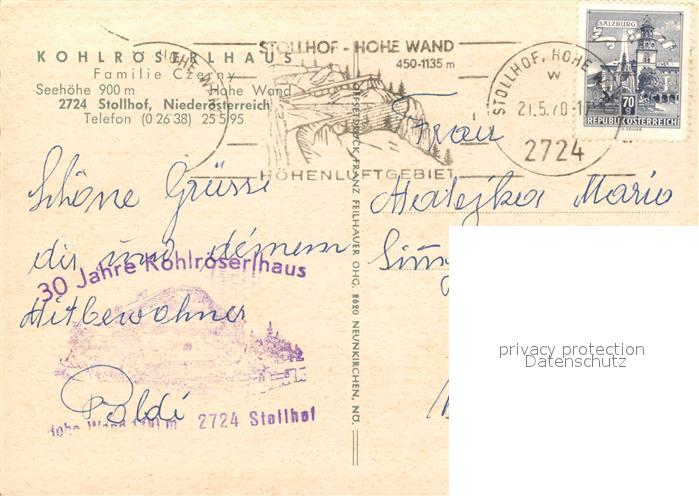 KOHLRÖSERLHAUS
Familie Czerny
Seehöhe 900 m Hohe Wand
2724 Stollhof, Niederösterreich
Telefon (0 26 38) 25 5/95
STOLLHOF - HOHE WAND
450-1135 m
HÖHENLUFTGEBIET
STOLLHOF, HOHE
W
21.5.70-1
2724
SALZBURG
70
REPUBLIK ÖSTERREICH
OFFSETDRUCK FRANZ FEILHAUER OHG, 2620 NEUNKIRCHEN, NÖ.
Schöne Grüsse
dir und deinem
Mitbewohner
Poldi
30 Jahre Kohlröserlhaus
Hohe Wand 2724 Stollhof
Frau
Matejka Maria
privacy protection
Datenschutz